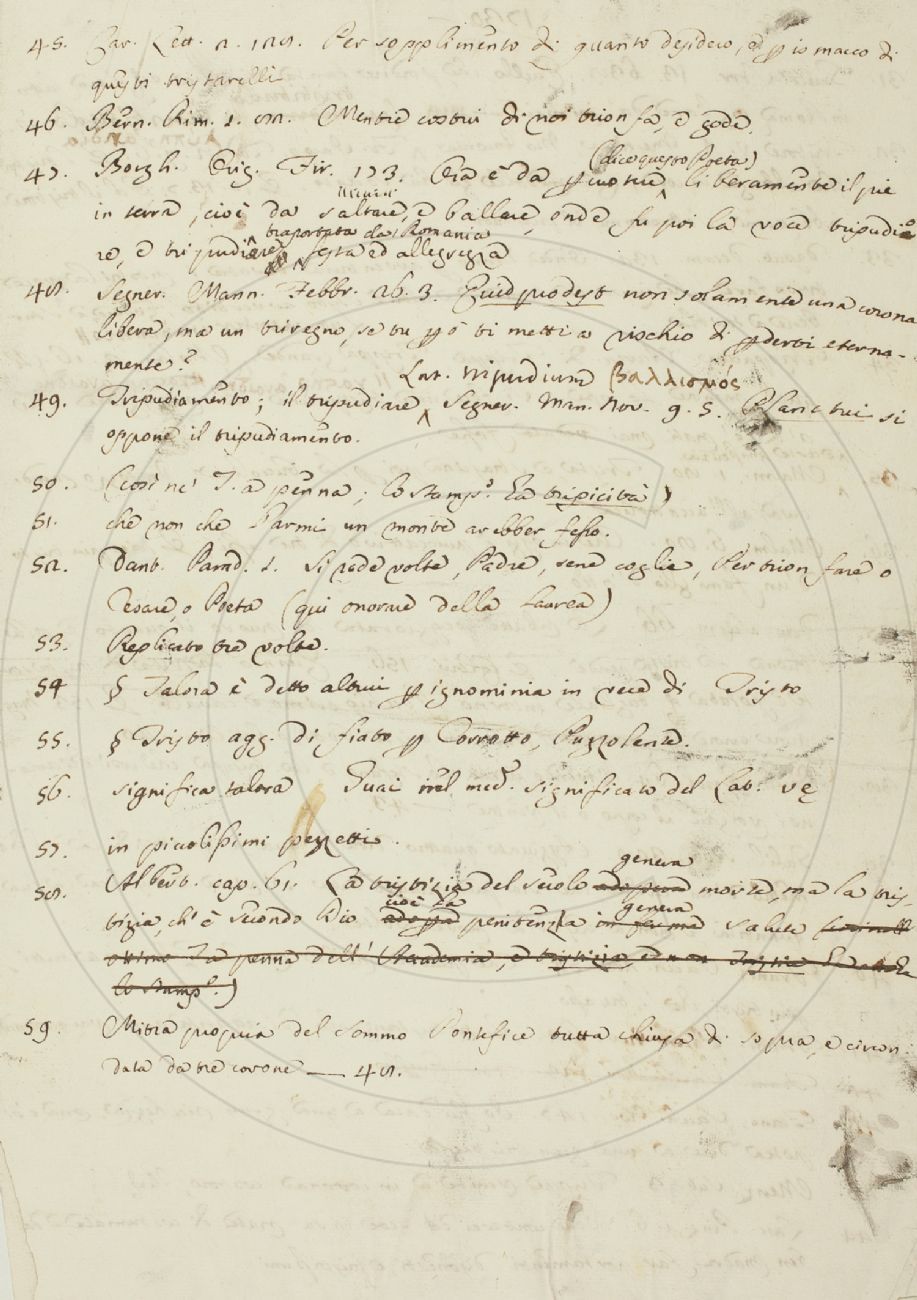 45. Car. Lett. 2. 129. Per sopplimento di quanto desidero, ed io manco di
questi tristarelli
46. Bern. Rim. 1. Mentre costui di noi trionfa, e gode.
(dico questo Poeta)
47. Borgh. Orig. Fir. 173. Ora è da percuotere liberamente il piè
in terra, cioè da saltare, e ballare, onde fu poi la voce tripudia
trasportata da Romania
re, e tripudiare festa ed allegrezza
48. Segner. Mann. Febbr. 26. 3. Quid prodest non solamente una corona
libera, ma un triregno, se tu ti metti a rischio di perderti eterna-
mente?
Lat. tripudium βαλλισμός
49. Tripudiamento; il tripudiare Segner. Man. Nov. 9. 5. Planctui si
oppone il tripudiamento.
50. (così ne' T. a penna; lo Stamp.º ha tripicità)
51. che non che Parmi un monte arebber fesso.
52. Dant. Parad. 1. Sì rade volte, Padre, sene coglie, Per trionfare o
Cesare, o Poeta (qui onorare della laurea)
53. Replicato tre volte.
54 § Talora è detto altrui per ignominia in vece di Tristo
55. § Tristo agg. di fiato per Corrotto, Puzzolente.
56. significa talora Guai nel med.º significato del Lat. væ
57. in piccolissimi pezzetti.
genera
58. Albert. cap. 61. La tristizia del secolo morte, ma la tris-
cioè la genera
tizia, ch' è secondo Dio penitenzia salute
penna dell' Accademia, e tristizia, ed
lo Stamp.º)
59. Mitra propria del Sommo Pontefice tutta chiusa di sopra, e circon:
data da tre corone — 48.